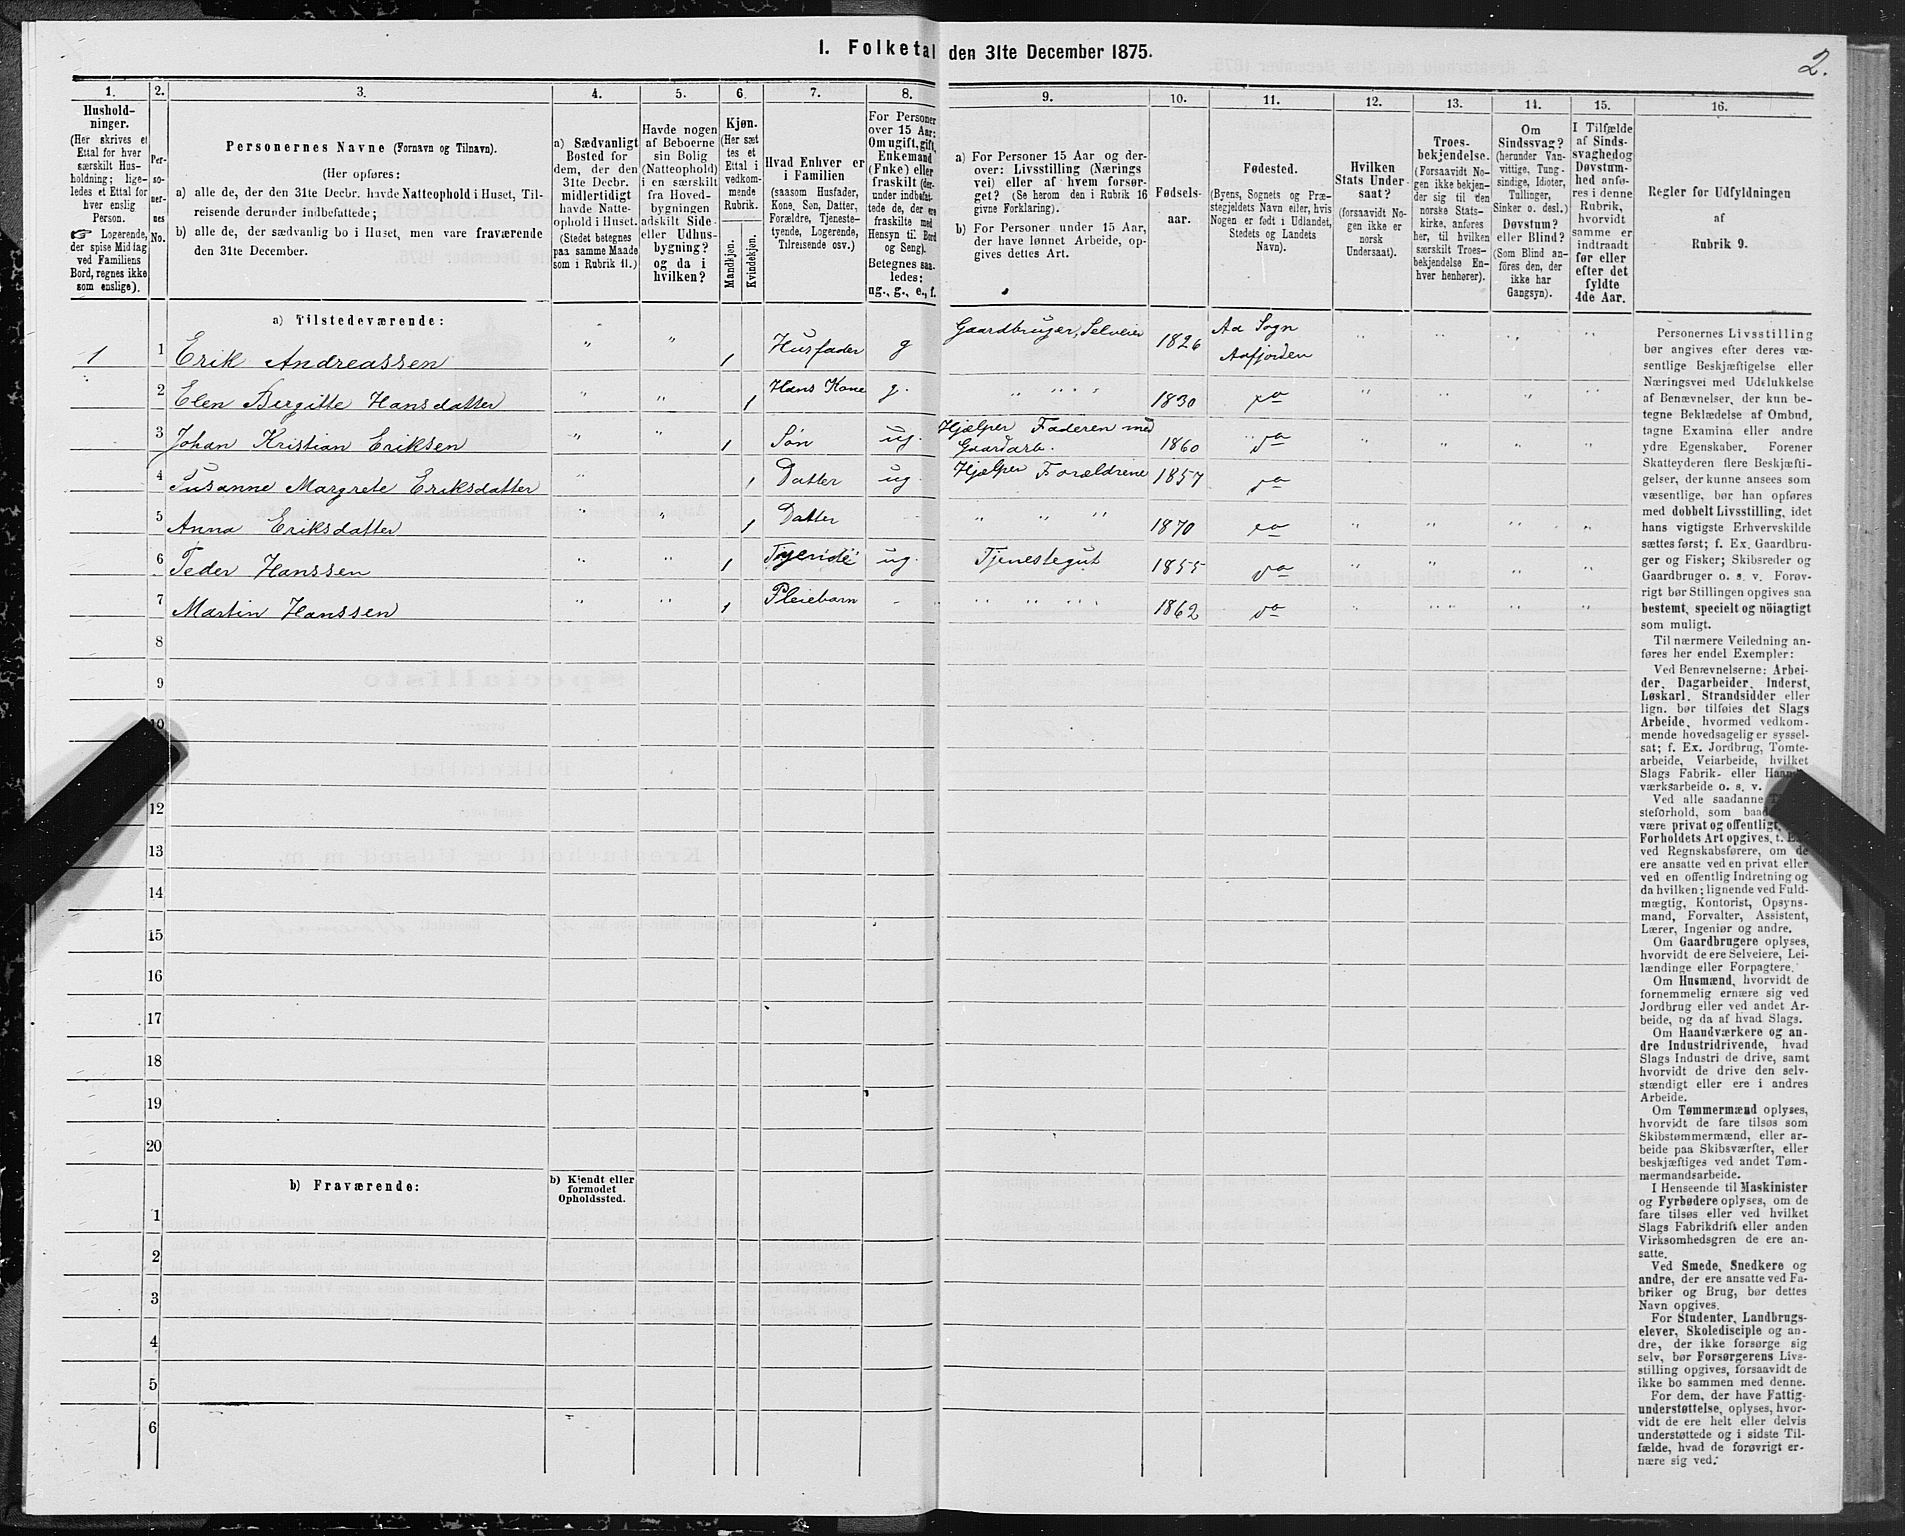 1. Folketal den 31te December 1875.
2.
1. 2. 3. 4. 5. 6. 7. 8. 9. 10. 11. 12. 13. 14. 15. 16.
Hushold-
ninger.
(Her skrives et
Ettal for hver
særskilt Hus-
holdning; lige-
ledes et Ettal for
hver enslig
Person.
☞ Logerende,
der spise Middag
ved Familiens
Bord, regnes ikke
som enslige).
Per-
so-
ner-
nes
No.
Personernes Navne (Fornavn og Tilnavn).
(Her opføres:
a) alle de, der den 31te Decbr. havde Natteophold i Huset, Til-
reisende derunder indbefattede;
b) alle de, der sædvanlig bo i Huset, men vare fraværende
den 31te December.
a) Sædvanligt
Bosted for
dem, der den
31te Decbr.
midlertidigt
havde Natte-
ophold i Huset.
(Stedet betegnes
paa samme Maade
som i Rubrik 11.)
Havde nogen
af Beboerne
sin Bolig
(Natteophold)
i en særskilt
fra Hoved-
bygningen
adskilt Side-
eller Udhus-
bygning?
og da i
hvilken?
Kjøn.
(Her sæt-
tes et
Ettal i
vedkom-
mende
Rubrik.
Mandkjøn.
Kvindekjøn.
Hvad Enhver er
i Familien
(saasom Husfader,
Kone, Søn, Datter,
Forældre, Tjeneste-
tyende, Logerende,
Tilreisende osv.)
For Personer
over 15 Aar:
Om ugift, gift,
Enkemand
(Enke) eller
fraskilt (der-
under indbefat-
tede de, der ere
fraskilte med
Hensyn til Bord
og Seng).
Betegnes saa-
ledes:
ug., g., e., f.
a) For Personer 15 Aar og der-
over: Livsstilling (Nærings-
vei) eller af hvem forsør-
get? (Se herom den i Rubrik 16
givne Forklaring).
b) For Personer under 15 Aar,
der have lønnet Arbeide, op-
gives dettes Art.
Fødsels-
aar.
Fødested.
(Byens, Sognets og Præ-
stegjeldets Navn eller, hvis
Nogen er født i Udlandet,
Stedets og Landets
Navn).
Hvilken
Stats Under-
saat?
(forsaavidt No-
gen ikke er
norsk
Undersaat).
Troes-
bekjendelse.
(Forsaavidt No-
gen ikke bekjen-
der sig til den
norske Stats-
kirke, anføres
her, til hvilken
særskilt Troes-
bekjendelse En-
hver henhører).
Om
Sindssvag?
(herunder Van-
vittige, Tung-
sindige, Idioter,
Tullinger,
Sinker o. desl.)
Døvstum?
eller Blind?
(Som Blind an-
føres den, der
ikke har
Gangsyn).
I Tilfælde
af Sinds-
svaghed og
Døvstum-
hed anfø-
res i denne
Rubrik,
hvorvidt
samme er
indtraadt
før eller
efter det
fyldte
4de Aar.
Regler for Udfyldningen
af
Rubrik 9.
a) Tilstedeværende:
1 1 Erik Andreassen " " 1 Husfader g Gaardbruger, Selveier 1826 Aa Sogn Aafjorden " " " "
2 Elen Bergitte Hansdatter " " 1 Hans Kone g. " " " " 1830 do " " " "
3 Johan Kristian Eriksen " " 1 Søn ug. Hjælper Faderen med Gaardarb. 1860 do " " " "
4 Susanne Margrete Eriksdatter " " 1 Datter ug. Hjælper Forældrene 1857 do " " " "
5 Anna Eriksdatter " " 1 Datter - " " " 1870 do " " " "
6 Peder Hanssen " " 1 ug. Tjenestegut 1855 do " " " "
7 Martin Hanssen " " 1 Pleiebarn - " " " " 1862 do " " " "
8
9
10
12
13
14
15
16
17
18
19
20
b) Fraværende:
b) Kjendt eller
formodet
Opholdssted.
1
2
3
4
5
6
Personernes Livsstilling
bør angives efter deres væ-
sentlige Beskjæftigelse eller
Næringsvei med Udelukkelse
af Benævnelser, der kun be-
tegne Beklædelse af Ombud,
tagne Examina eller andre
ydre Egenskaber. Forener
Skatteyderen flere Beskjæfti-
gelser, der kunne ansees som
væsentlige, bør han opføres
med dobbelt Livsstilling, idet
hans vigtigste Erhvervskilde
sættes først; f. Ex. Gaardbru-
ger og Fisker; Skibsreder og
Gaardbruger o. s. v. Forøv-
rigt bør Stillingen opgives saa
bestemt, specielt og nöiagtigt
som muligt.
Til nærmere Veiledning an-
føres her endel Exempler:
Ved Benævnelserne: Arbei-
der, Dagarbeider, Inderst,
Løskarl, Strandsidder eller
lign. bør tilføies det Slags
Arbeide, hvormed vedkom-
mende hovedsagelig er syssel-
sat; f. Ex. Jordbrug, Tomte-
arbeide, Veiarbeide, hvilket
Slags Fabrik- eller Haand-
værksarbeide o. s. v.
Ved alle saadanne
steforhold, som baade
være privat og offentligt,
Forholdets Art opgives, t. Ex.
ved Regnskabsførere, om de
ere ansatte ved en privat eller
ved en offentlig Indretning og
da hvilken; lignende ved Fuld-
mægtig, Kontorist, Opsyns-
mand, Forvalter, Assistent,
Lærer, Ingeniør og andre.
Om Gaardbrugere oplyses,
hvorvidt de ere Selveiere, Lei-
lændinge eller Forpagtere.
Om Husmænd, hvorvidt de
fornemmelig ernære sig ved
Jordbrug eller ved andet Ar-
beide, og da af hvad Slags.
Om Haandværkere og an-
dre Industridrivende, hvad
Slags Industri de drive, samt
hvorvidt de drive den selv-
stændigt eller ere i andres
Arbeide.
Om Tømmermænd oplyses,
hvorvidt de fare tilsøs som
Skibstømmermænd, eller ar-
beide paa Skibsværfter, eller
beskjæftiges ved andet Tøm-
mermandsarbeide.
I Henseende til Maskinister
og Fyrbødere oplyses, om de
fare tilsøs eller ved hvilket
Slags Fabrikdrift eller anden
Virksomhedsgren de ere an-
satte.
Ved Smede, Snedkere og
andre, der ere ansatte ved Fa-
briker og Brug, bør dettes
Navn opgives.
For Studenter, Landbrugs-
elever, Skoledisciple og an-
dre, der ikke forsørge sig
selv, bør Forsørgerens Livs-
stilling opgives, forsaavidt de
ikke bo sammen med denne.
For dem, der have Fattig-
understøttelse, oplyses, hvor-
vidt de ere helt eller delvis
understøttede og i sidste Til-
fælde, hvad de forøvrigt er-
nære sig ved.